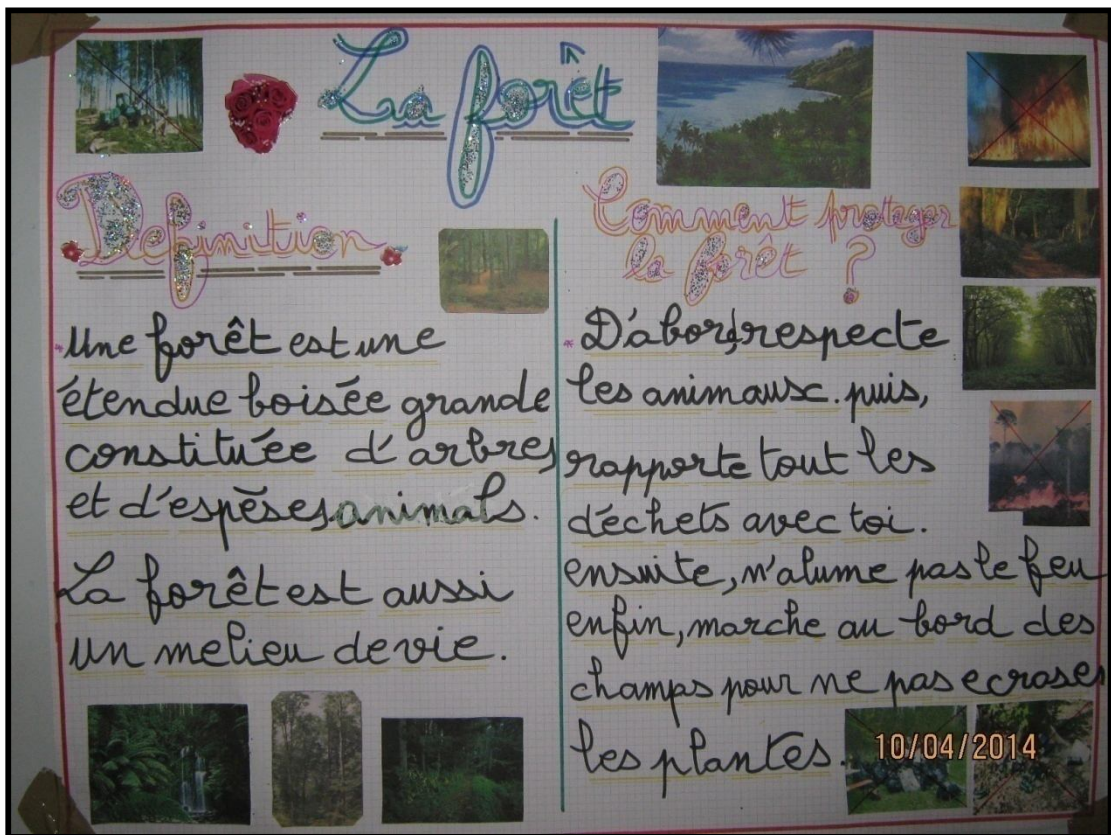 La forêt
Définition
Une forêt est une
étendue boisée grande
constituée d'arbres
et d'espèses animals.
La forêt est aussi
un melieu de vie.
Comment proteger
la forêt ?
D'abord, respecte
les animaux. puis,
rapporte tout les
déchets avec toi.
ensuite, n'alume pas le feu
enfin, marche au bord des
champs pour ne pas ecraser
les plantes.
10/04/2014